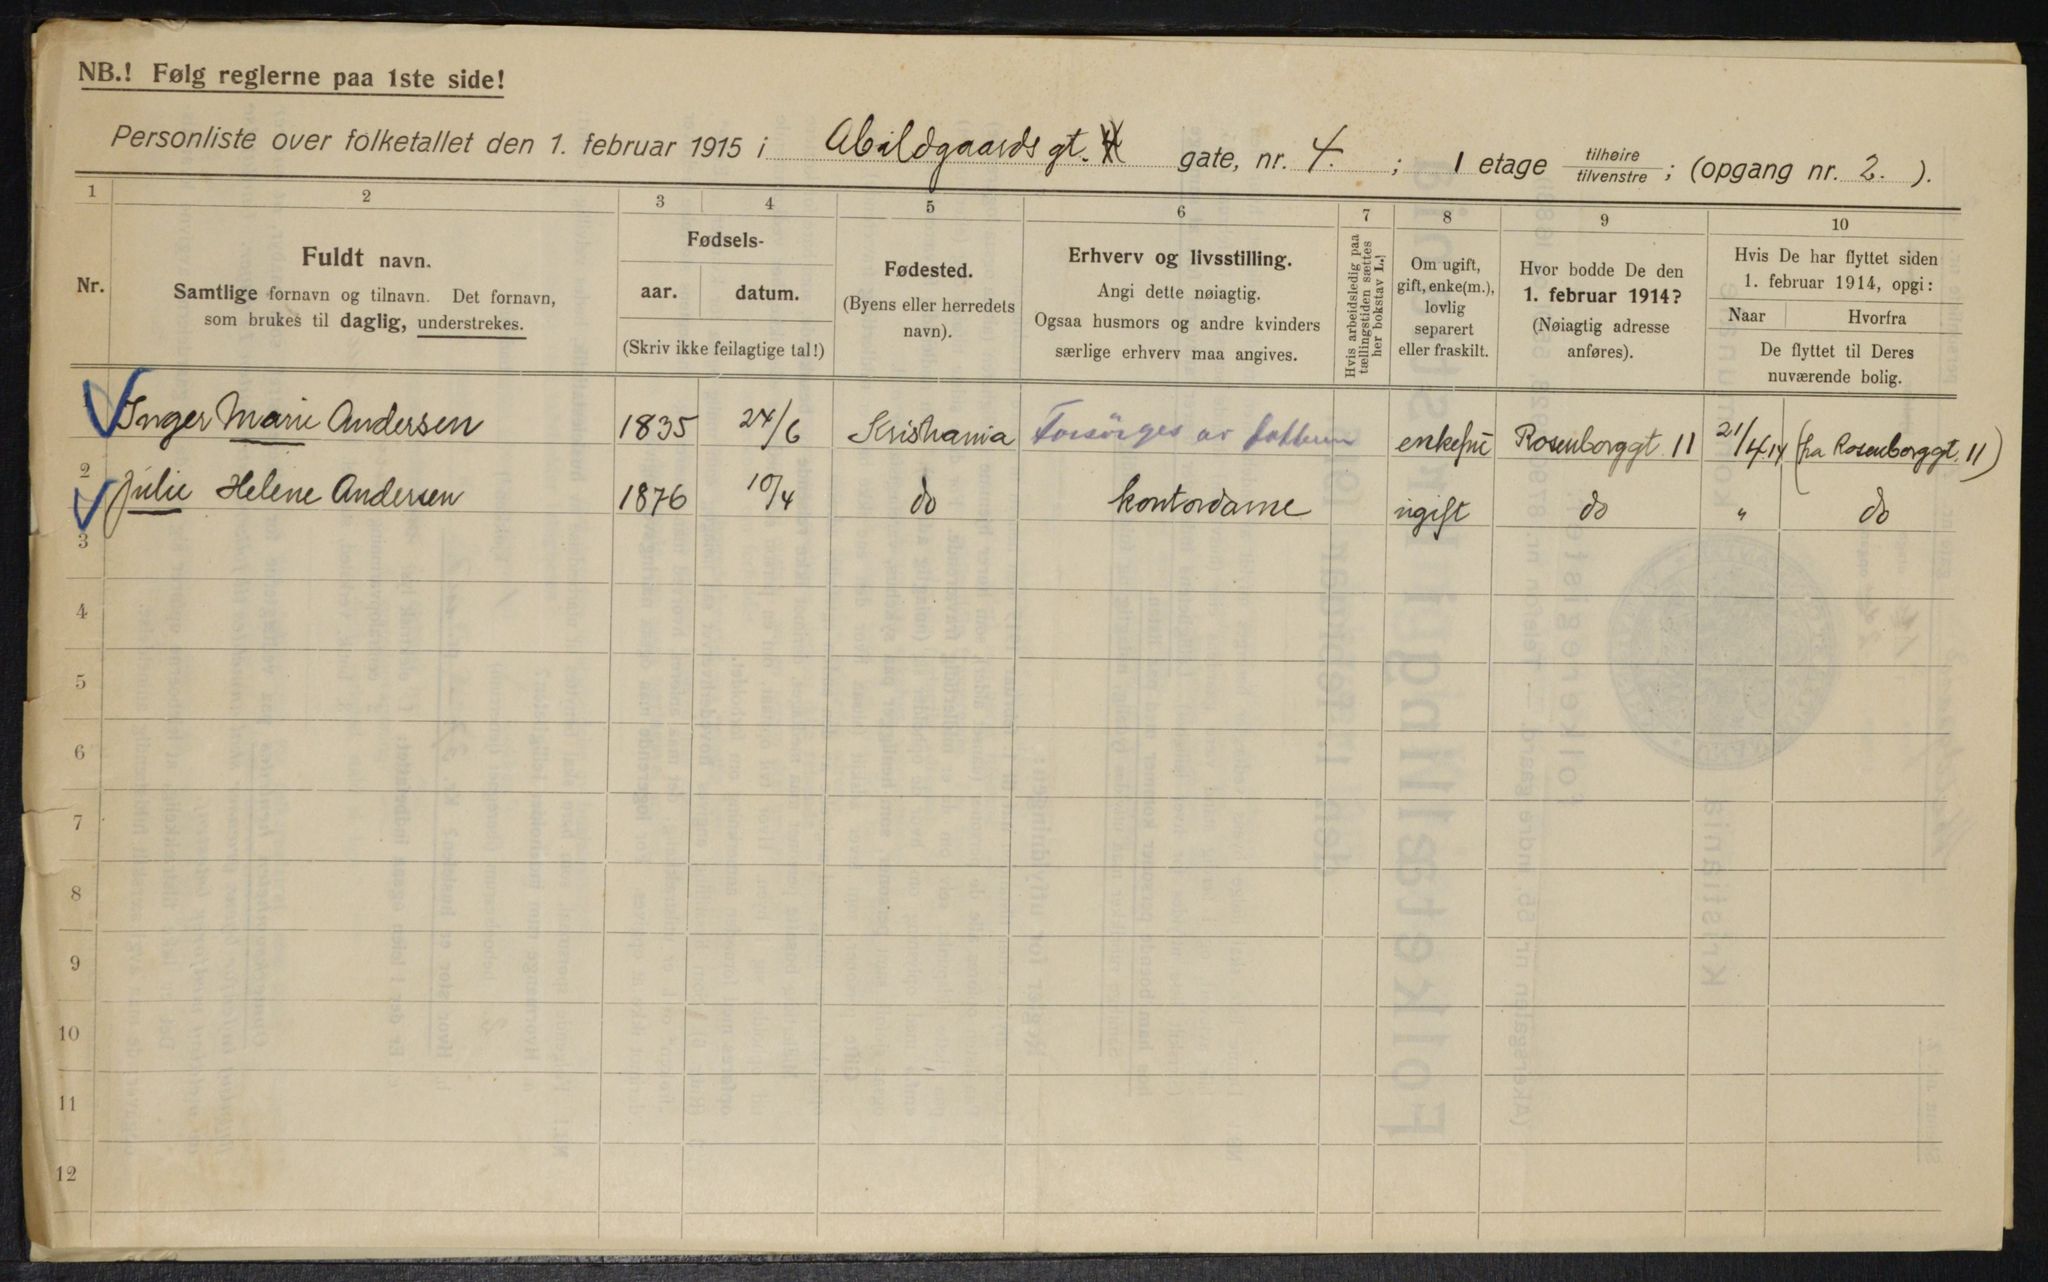 NB.! Følg reglerne paa 1ste side!
Personliste over folketallet den 1. februar 1915 i Abildgaards gt. gate, nr. 4. ; 1 etage tilhøire / tilvenstre ; (opgang nr. 2. ).
1 2 3 4 5 6 7 8 9 10
Nr.
Fuldt navn.
Samtlige fornavn og tilnavn. Det fornavn,
som brukes til daglig, understrekes.
Fødsels-
aar. datum.
(Skriv ikke feilagtige tal!)
Fødested.
(Byens eller herredets
navn).
Erhverv og livsstilling.
Angi dette nøiagtig.
Ogsaa husmors og andre kvinders
særlige erhverv maa angives.
Hvis arbeidsledig paa
tællingstiden sættes
her bokstav L.!
Om ugift,
gift, enke(m.),
lovlig
separert
eller fraskilt.
Hvor bodde De den
1. februar 1914?
(Nøiagtig adresse
anføres).
Hvis De har flyttet siden
1. februar 1914, opgi:
Naar Hvorfra
De flyttet til Deres
nuværende bolig.
Inger Marie Andersen 1835 24/6 Kristiania Forsörges av datteren enkefru Rosenborggt. 11 21/4 14 (fra Rosenborggt. 11)
2 Julie Helene Andersen 1876 10/4 do kontordame ugift do " do
3
4
5
6
7
8
9
10
11
12